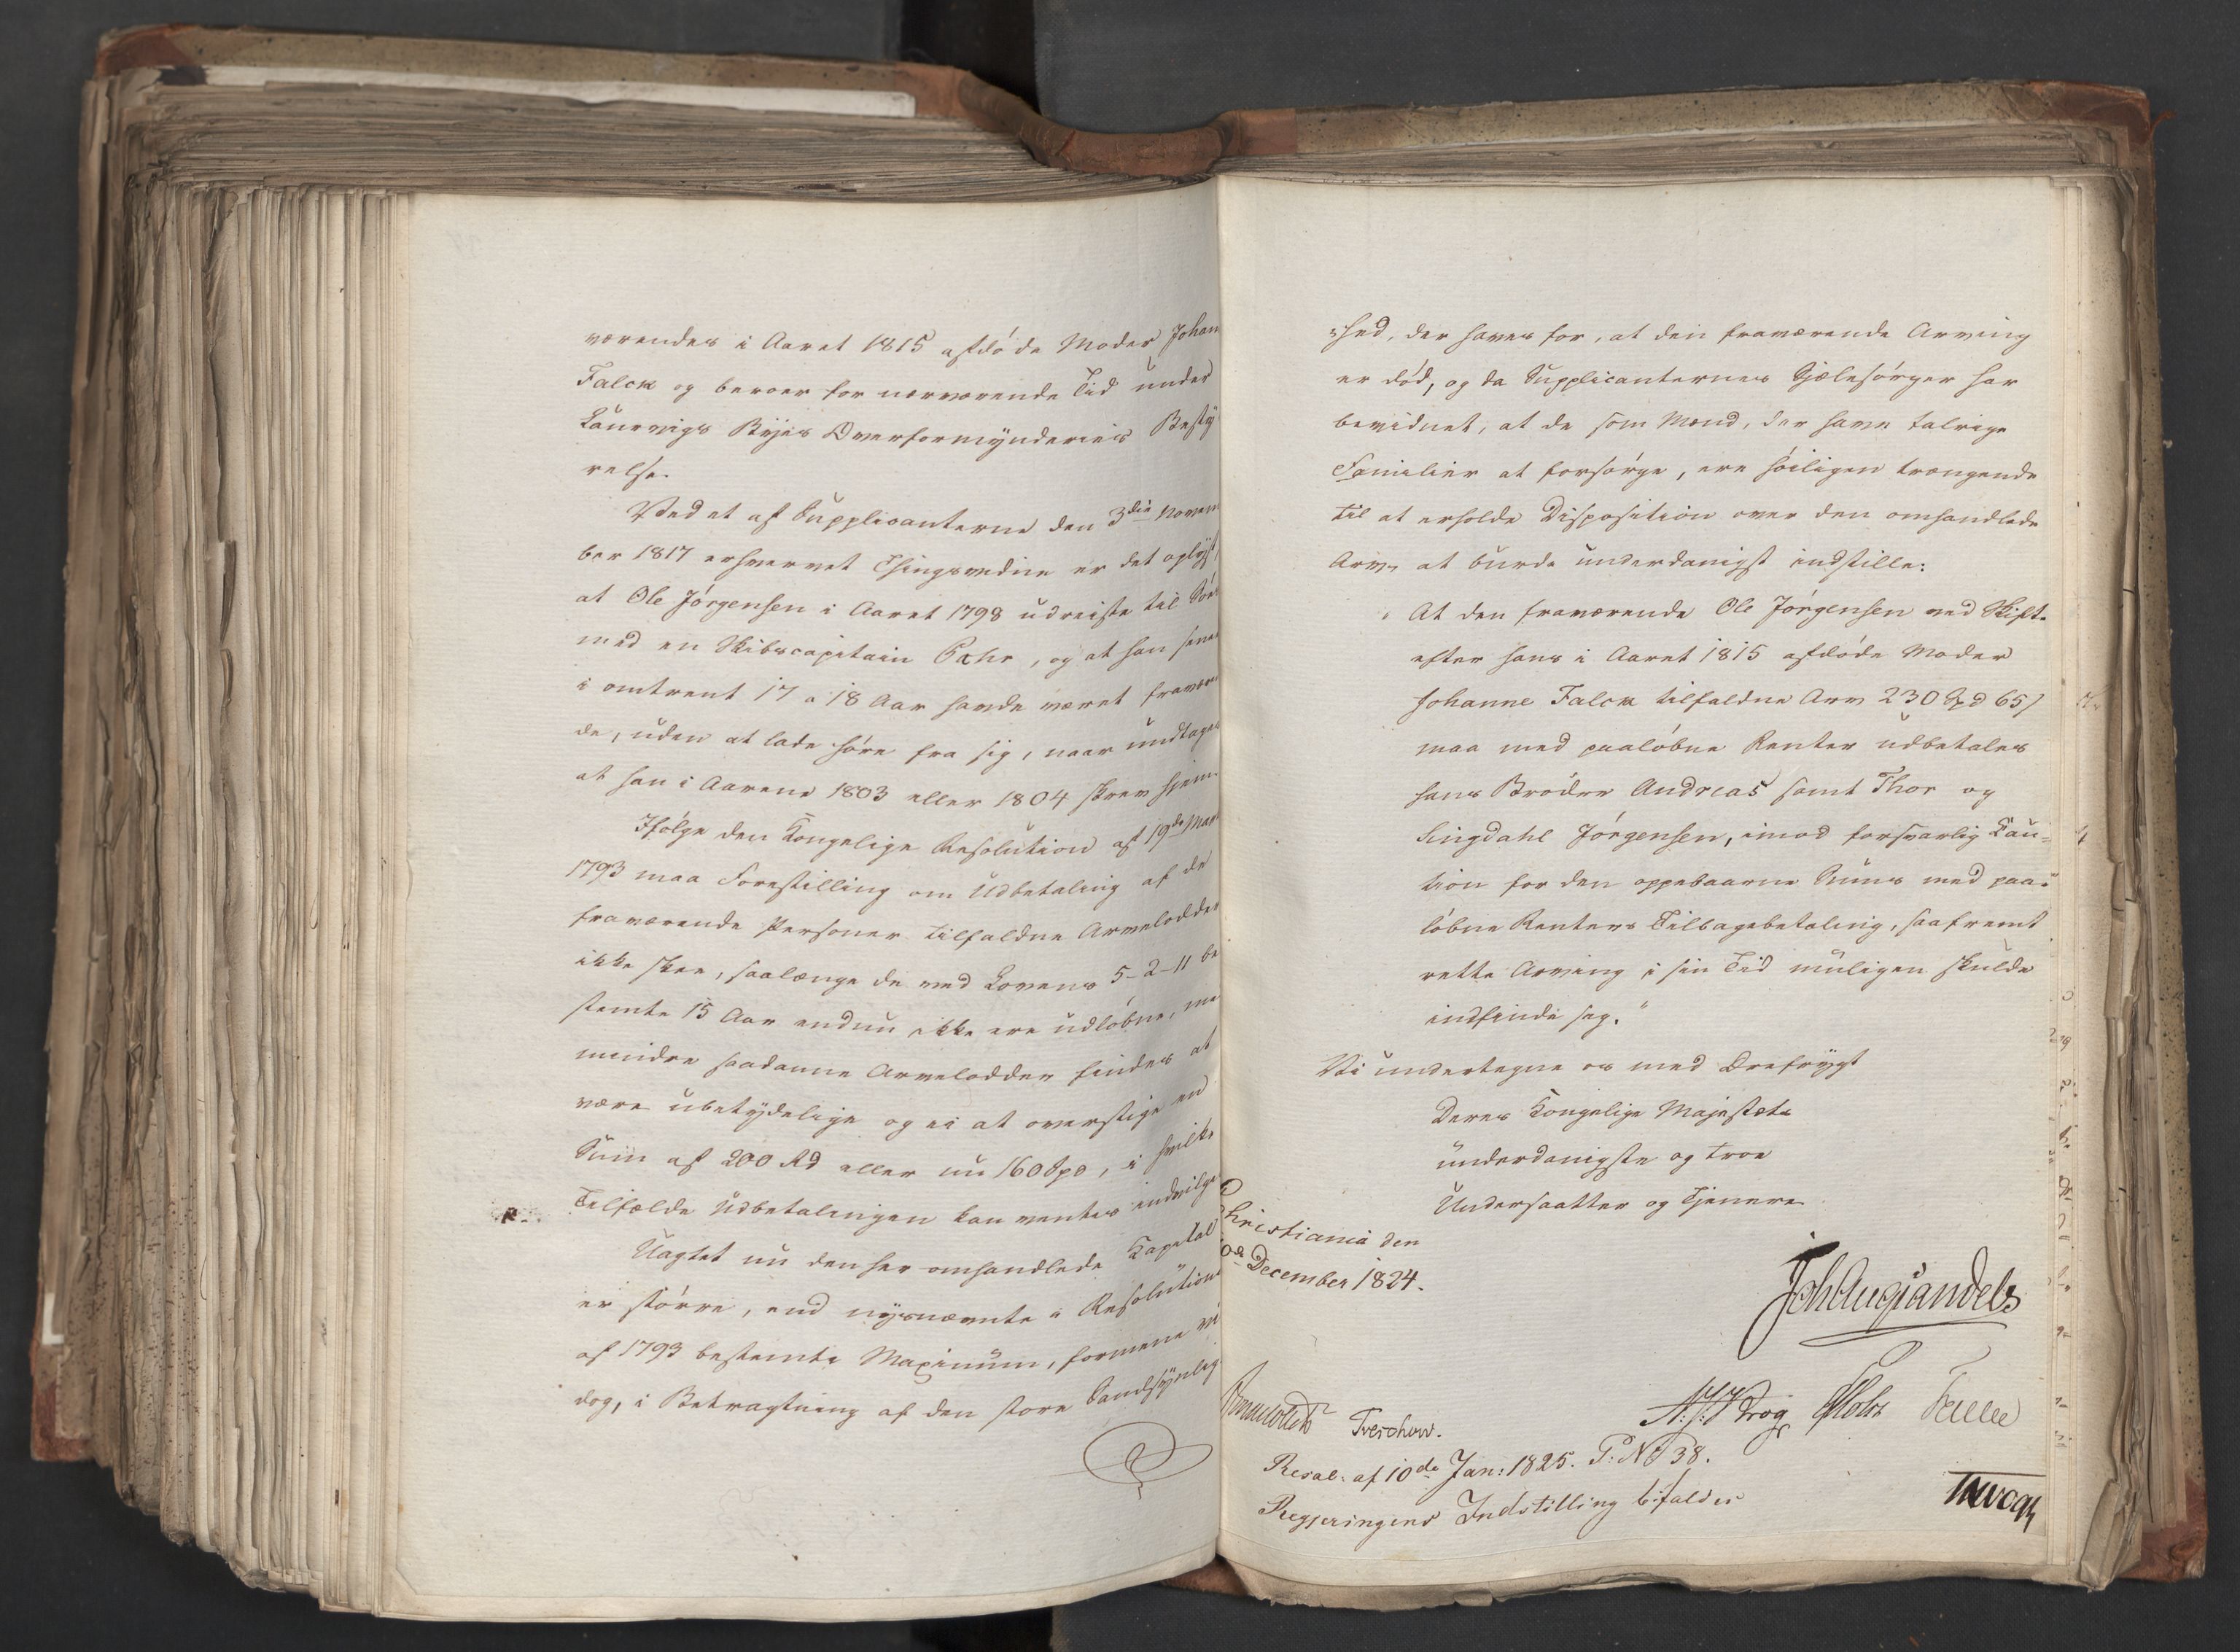 værendes i Aaret 1815 afdöde Moder Johan
Falck og beroer for nærværende Tid under
Laurvigs Byes Overformynderies Besty
relse.
Ved et af Supplicanterne den 3die Novem
ber 1817 erhvervet Thingsvidne er det oplyst,
at Ole Jörgensen i Aaret 1798 udreiste til Söes
med en Skibscapitain Bæhr, og at han sene
i omtrent 17 a 18 Aar havde været fraværen
de, uden at lade höre fra sig, naar undtages
at han i Aarene 1803 eller 1804 skrev hjem.
Ifölge den Kongelige Resolution af 19de Mar
1793 maa Forestilling om Udbetaling af de
fraværende Personer tilfaldne Arvelodder
ikke skee, saalænge de ved Lovens 5-2-11 be
stemte 15 Aar endnu ikke ere udlöbne, me
mindre saadanne Arvelodder findes at
være ubetydelige og ei at overstige en
Sum af 200 Rd eller nu 160 Spd, i hvilke
Tilfælde Udbetalingen kan ventes indvilge
Uagtet nu den her omhandlede Kapital
er större, end nysnævnte i Resolution
af 1793 bestemte Maximum, formene vi
dog, i Betragtning af den store Sandsynlig
hed, der haves for, at den fraværende Arving
er död, og da Supplicanternes Sjælesörger har
bevidnet, at de som Mænd, der have talrige
Familier at forsörge, ere höiligen trængende
til at erholde Disposition over den omhandlede
Arv, at burde underdanigst indstille:
At den fraværende Ole Jörgensen ved Skift
efter hans i Aaret 1815 afdöde Moder
Johanne Falck tilfaldne Arv 230 Spd 65 /
maa med paalöbne Renter udbetales
hans Brödre Andreas samt Thor og
Lingdahl Jörgensen, imod forsvarlig Cau-
tion for den oppebaarne Sums med paa-
löbne Renters Tilbagebetaling, saafremt
rette Arving i sin Tid muligen skulde
indfinde sig."
Vi undertegne os med Ærefrygt
Deres Kongelige Majestæts
underdanigste og troe
Undersaatter og Tjenere
Christiania den
December 1824.
Joh Aug Sandels
Treschow.
Resol: af 10de Jan: 1825. P: No 38.
Regjeringens Indstilling bifaldes